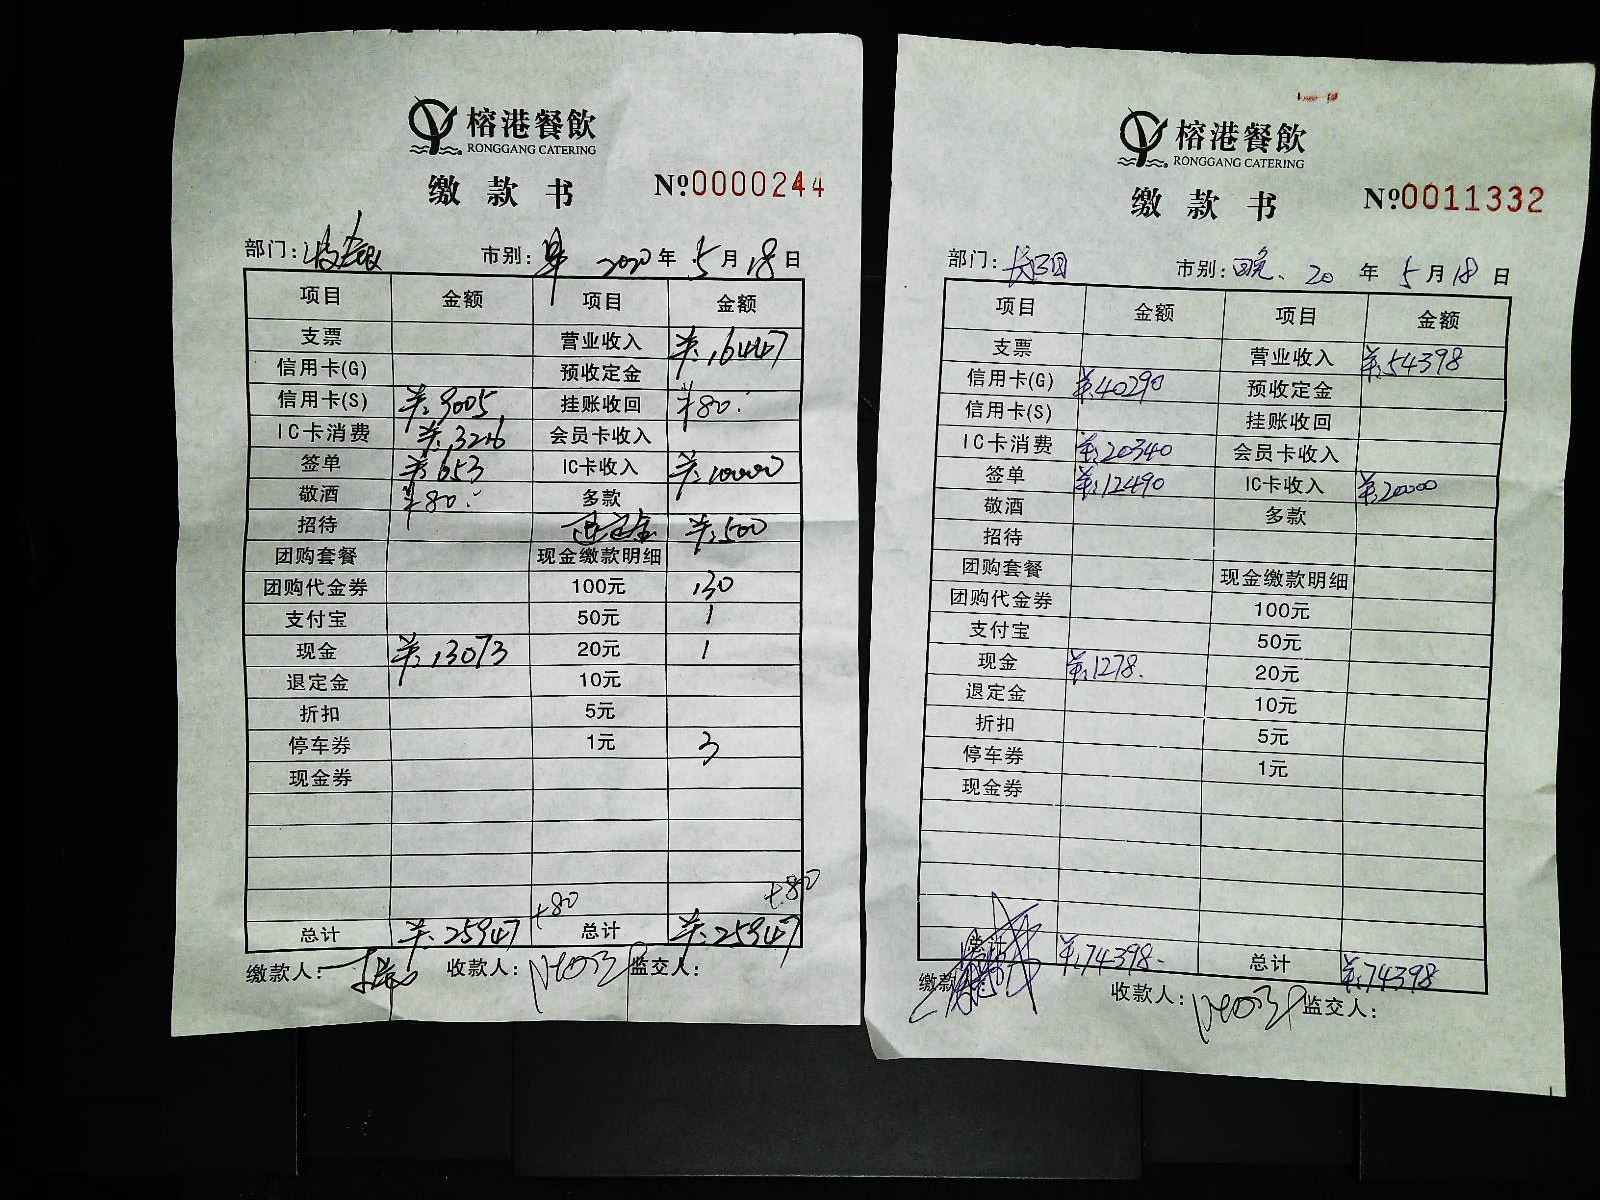 榕港餐飲
RONGGANG CATERING
缴款书 №0000244
部门: 市别:早 2020年5月18日
项目 金额 项目 金额
支票 营业收入 ¥:16447
信用卡(G) 预收定金
信用卡(S) ¥:9005 挂账收回 ¥80.
IC卡消费 ¥:3216 会员卡收入
签单 ¥:653 IC卡收入 ¥:10000
敬酒 ¥80. 多款
招待 退定金 ¥:500
团购套餐 现金缴款明细
团购代金券 100元 130
支付宝 50元 1
现金 ¥:13073 20元 1
退定金 10元
折扣 5元
停车券 1元 3
现金券
+80 +80
总计 ¥:25947 总计 ¥:25947
缴款人: 收款人: 监交人:
榕港餐飲
RONGGANG CATERING
缴款书 №0011332
部门: 市别:晚. 20年5月18日
项目 金额 项目 金额
支票 营业收入 ¥:54398
信用卡(G) ¥:40290 预收定金
信用卡(S) 挂账收回
IC卡消费 ¥:20340 会员卡收入
签单 ¥:12490 IC卡收入 ¥:20000
敬酒 多款
招待
团购套餐 现金缴款明细
团购代金券 100元
支付宝 50元
现金 ¥:1278. 20元
退定金 10元
折扣 5元
停车券 1元
现金券
¥:74398. 总计 ¥:74398
缴款 收款人: 监交人: